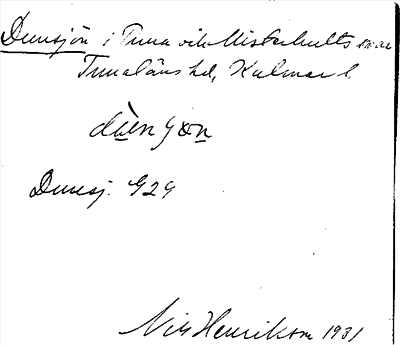 Dunsjön i Tuna och Misterhults snr
Tunaläns hd, Kalmar l.
dùnʃɷn
Dunsj. G29
Nils Henrikson 1931